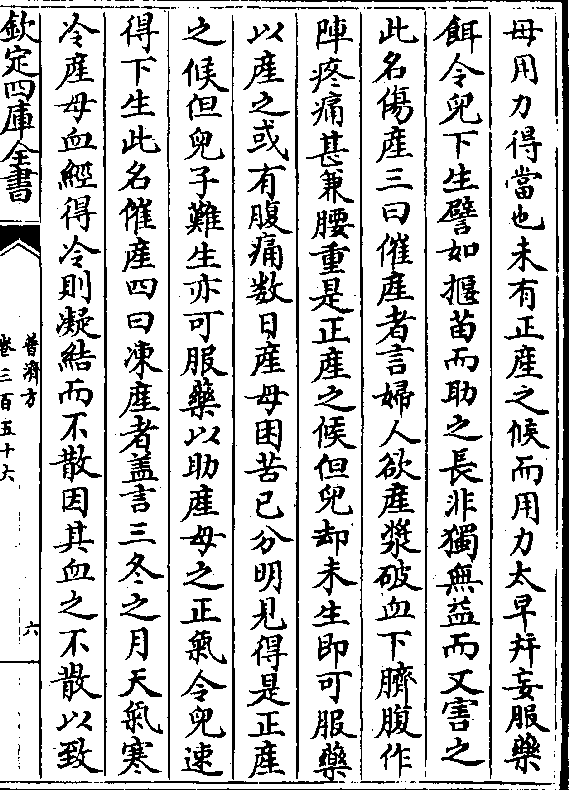 母用力得當也未有正産之候而用力太早并妄服藥
餌令兒下生譬如揠苗而助之長非獨無益而又害之
此名傷産三曰催産者言婦人欲産漿破血下臍腹作
陣疼痛甚兼腰重是正産之候但兒却未生即可服藥
以産之或有腹痛数日産母困苦已分明見得是正産
之候但兒子難生亦可服藥以助産母之正氣令兒速
得下生此名催産四曰凍産者盖言三冬之月天氣寒
冷産母血經得冷則凝結而不散因其血之不散以致
欽定四庫全書
普濟方
卷三百五十六
六